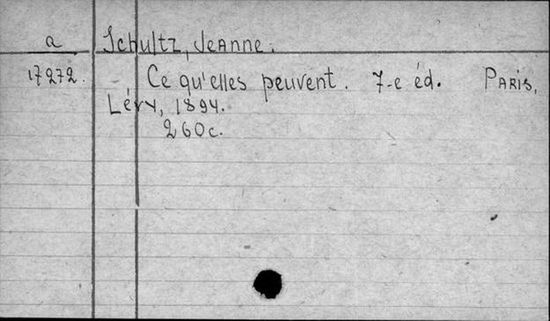 a Schultz, Jeanne.
17272. Ce qu'elles peuvent. 7-e éd. Paris,
Lévy, 1894.
260c.